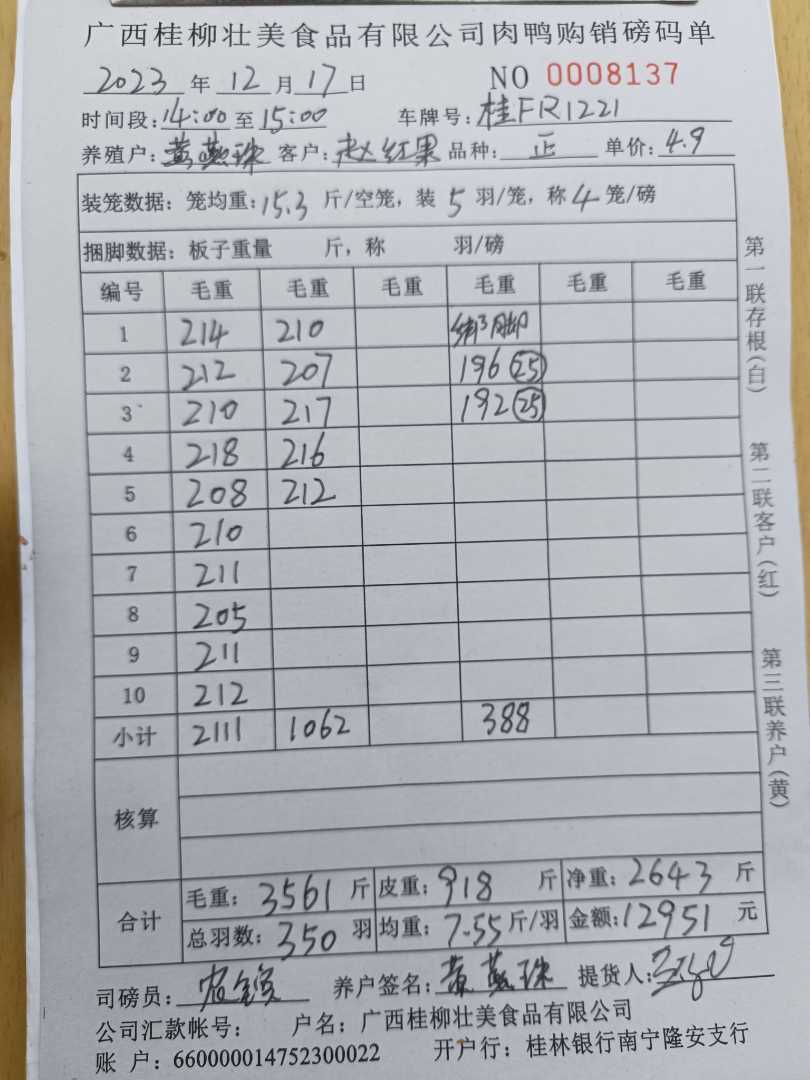 广西桂柳壮美食品有限公司肉鸭购销磅码单
2023 年 12 月 17 日 NO 0008137
时间段: 14:00 至 15:00 车牌号: 桂FR1221
养殖户: 黄燕珠 客户: 赵红果 品种: 正 单价: 4.9
装笼数据: 笼均重: 15.3 斤/空笼, 装 5 羽/笼, 称 4 笼/磅
捆脚数据: 板子重量 斤, 称 羽/磅
编号 毛重 毛重 毛重 毛重 毛重 毛重
1 214 210 绑脚
2 212 207 196 25
3 210 217 192 25
4 218 216
5 208 212
6 210
7 211
8 205
9 211
10 212
小计 2111 1062 388
核算
合计
毛重: 3561 斤 皮重: 918 斤 净重: 2643 斤
总羽数: 350 羽 均重: 7.55 斤/羽 金额: 12951 元
司磅员: 养户签名: 黄燕珠 提货人:
公司汇款帐号: 户名: 广西桂柳壮美食品有限公司
账 户: 660000014752300022 开户行: 桂林银行南宁隆安支行
第一联存根(白)
第二联客户(红)
第三联养户(黄)